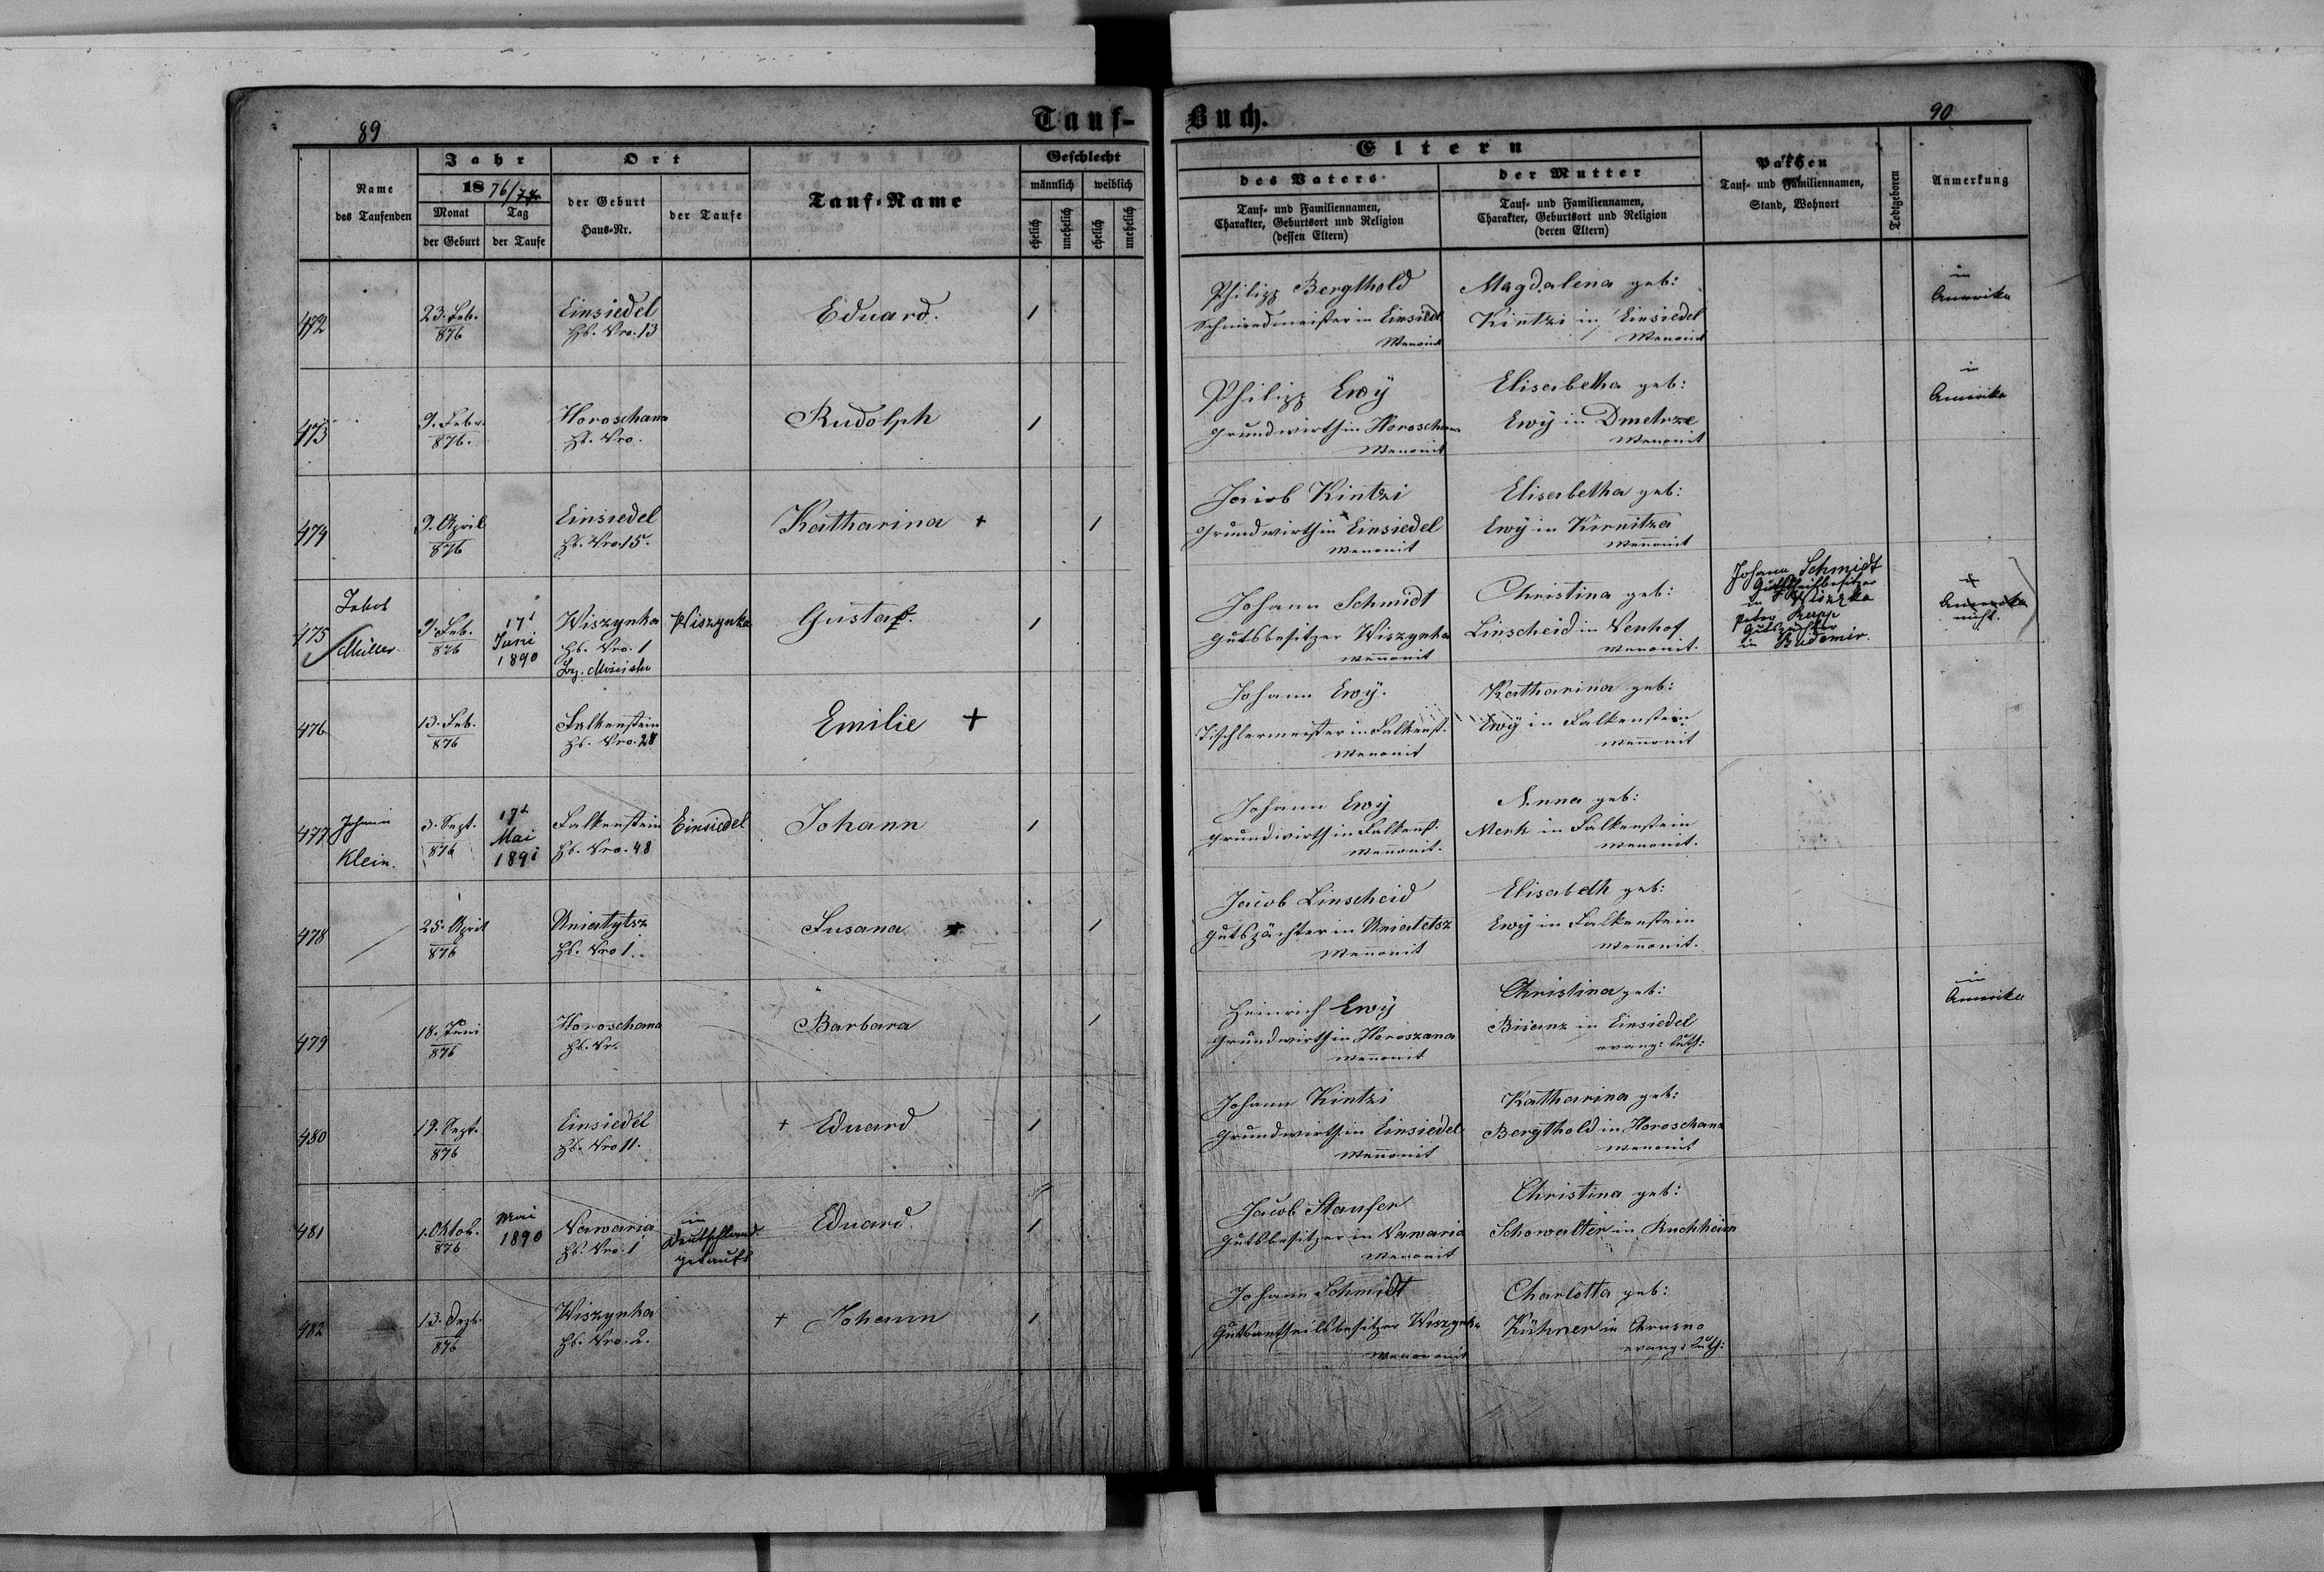 Tauf-
Buch.
89
90
Name
des Taufenden
Jahr
1876/77
Monat
der Geburt
Tag
der Taufe
Ort
der Geburt
Haus-Nr.
der Taufe
Tauf-Name
Geschlecht
männlich
weiblich
ehelich
unehelich
ehelich
unehelich
Eltern
des Vaters
Tauf- und Familiennamen,
Charakter, Geburtsort und Religion
(dessen Eltern)
der Mutter
Tauf- und Familiennamen,
Charakter, Geburtsort und Religion
(deren Eltern)
Pathen
Tauf- und Familiennamen,
Stand, Wohnort
Todtgeboren
Anmerkung
472
23. Feb.
876
Einsiedel
Hs. Nro. 13
Eduard.
1
Philipp Bergthold
Schmiedmeister in Einsiedl
Menonit
Magdalena geb:
Kintzi in Einsiedel
Menonit
in
Amerika
473
9. Feber.
876.
Horoschana
Hs. Nro.
Rudolph
1
Philipp Ewÿ
Grundwirth in Horoschana
Menonit
Elisabetha geb:
Ewÿ in Dmetrze
Menonit
in
Amerika
474
9. April
876
Einsiedel
Hs. Nro 15.
Katharina +
1
Jacob Kintzi
Grundwirth in Einsiedel
Menonit
Elisabetha geb:
Ewÿ in Kirnitza
Menonit
475
Jakob
Müller
9. Feb.
876
17t
Juni
1890
Wiszynka
Hs. Nro. 1
Wiszynka
Gustaf.
1
Johann Schmidt
Gutsbesitzer Wiszynka
Menonit
Christina geb:
Linscheid in Neuhof
Menonit.
Johann Schmidt
in
Peter Rupp
Gutspächter
in
Amerika
nicht.
476
13. Feb.
876
Falkenstein
Hs. Nro. 28
Emilie +
Johann Ewÿ.
Tischlermeister in Falkenst.
Menonit
Katharina geb:
Ewÿ in Falkenstein
Menonit
477
Johann
Klein.
3. Sept.
876
17t
Mai
1891
Falkenstein
Hs. Nro. 48
Einsiedel
Johann
1
Johann Ewÿ
Grundwirth in Falkenst.
Menonit.
Anna geb:
Merk in Falkenstein
Menonit.
478
25. April
876
Uniatytsz
Hs. Nro 1.
Susana +
1
Jacob Linscheid
Gutspächter in Uniatetsz
Menonit
Elisabeth geb:
Ewÿ in Falkenstein
Menonit.
479
18. Juni
876
Horoschana
Hs. Nr.
Barbara
1
Heinrich Ewÿ
Grundwirth in Horoszana
Menonit
Christina geb:
Bisanz in Einsiedel
evang: Luth:
in
Amerika
480
19. Sept.
876
Einsiedel
Hs. Nro 11.
+ Eduard
1
Johann Kintzi
Grundwirth in Einsiedel
Menonit
Katharina geb:
Bergthold in Horoschana
Menonit
481
1. Oktob.
876
Mai
1890
Nawaria
Hs. Nro. 1
in
Deutschland
getauft
Eduard.
1
Jacob Staufer
Gutsbesitzer in Nawaria
Menonit
Christina geb:
Schowalter in Ruchheim
482
13. Dezb.
876
Wiszynka
Hs. Nro. 2.
+ Johann
1
Johann Schmidt
Gutsantheilsbesitzer Wiszynka
Menonit
Charlotta geb:
Kühner in Chrusno
evang: Luth: